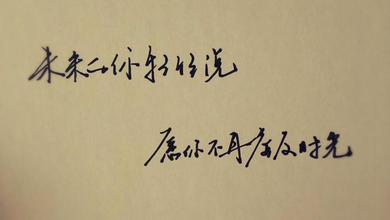 未来的你轻轻说
愿你不再虚度时光